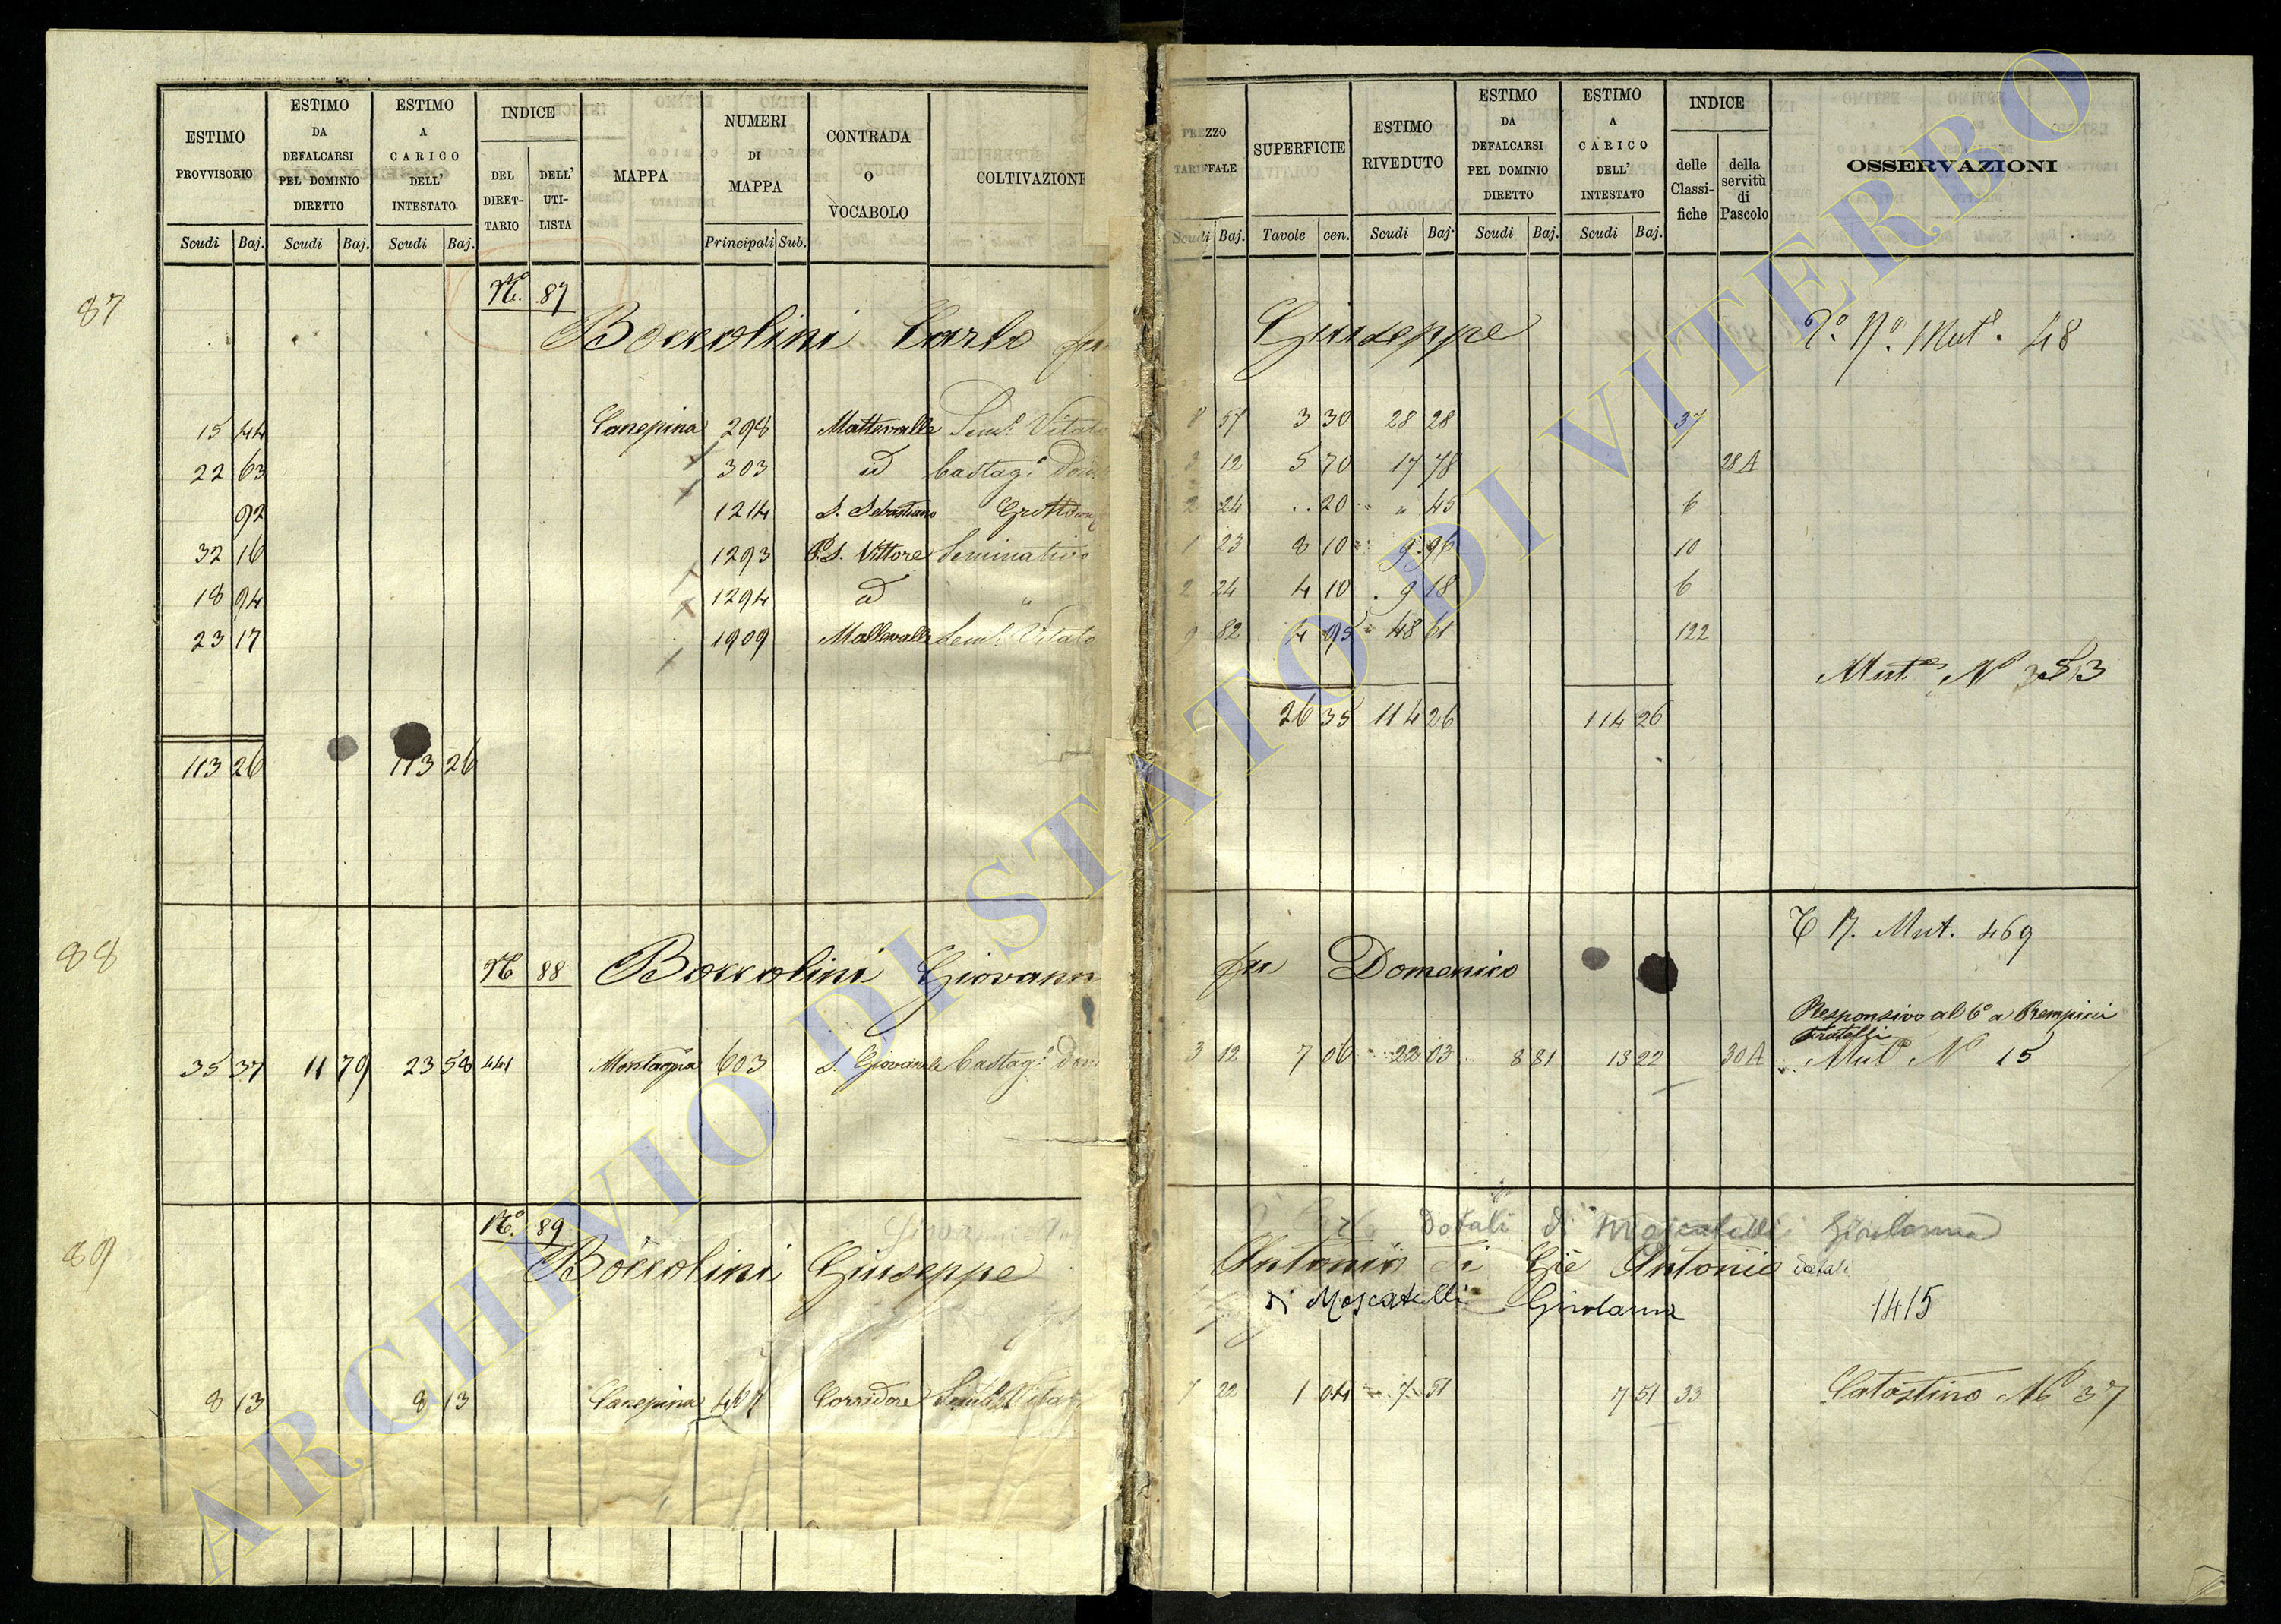 ESTIMO PROVVISORIO
ESTIMO DA DEFALCARSI PEL DOMINIO DIRETTO
ESTIMO A CARICO DELL' INTESTATO
INDICE
DEL DIRET-TARIO
DELL' UTI-LISTA
MAPPA
NUMERI DI MAPPA
CONTRADA O VOCABOLO
COLTIVAZIONE
PREZZO TARIFFALE
SUPERFICIE
ESTIMO RIVEDUTO
ESTIMO DA DEFALCARSI PEL DOMINIO DIRETTO
ESTIMO A CARICO DELL' INTESTATO
INDICE
delle Classi-fiche
della servitù di Pascolo
OSSERVAZIONI
Scudi Baj. Scudi Baj. Scudi Baj. Principali Sub. Scudi Baj. Tavole cen. Scudi Baj. Scudi Baj. Scudi Baj.
87
N.º 87
Boccolini Carlo fu Giuseppe
Mut. 48
15 44 Canepina 298 Mattevalle Sem.º Vitato 8 57 3 30 28 28 37
22 63 303 id Castag.º 3 12 5 70 17 78 28A
92 1214 S. Sebastiano 2 24 .. 20 " 45 6
32 16 1293 S. Vittore Seminativo 1 23 8 10 9 96 10
18 94 1294 id " 2 24 4 10 9 18 6
23 17 1909 Mallevalle Sem.º Vitato 9 82 4 95 48 61 122
Mut.e N.º 353
26 35 114 26 114 26
113 26 113 26
88
N.º 88 Boccolini Giovanni fu Domenico
T N. Mut. 469
Responsivo al 6º a Rempicci
Fratelli
35 37 11 79 23 58 441 Montagna 603 Castag.º 3 12 7 06 22 03 8 81 13 22 30A Mut.e Nº 15
89
N.º 89
dotali di Moscatelli Girolama
Boccolini Giuseppe Antonio di Giò Antonio dotali
di Moscatelli Girolama
1415
8 13 8 13 Canepina 467 Corridore Sem.º Vitato 7 22 1 04 7 51 7 51 33 Catastino Nº 37
ARCHIVIO DI STATO DI VITERBO